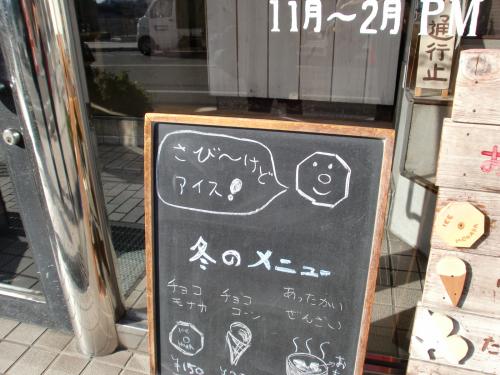 11月～2月 PM
通行止
さび〜けど
アイス!
冬のメニュー
チョコ
モナカ
チョコ
コーン
あったかい
ぜんざい
ICE
MONAKA
¥150